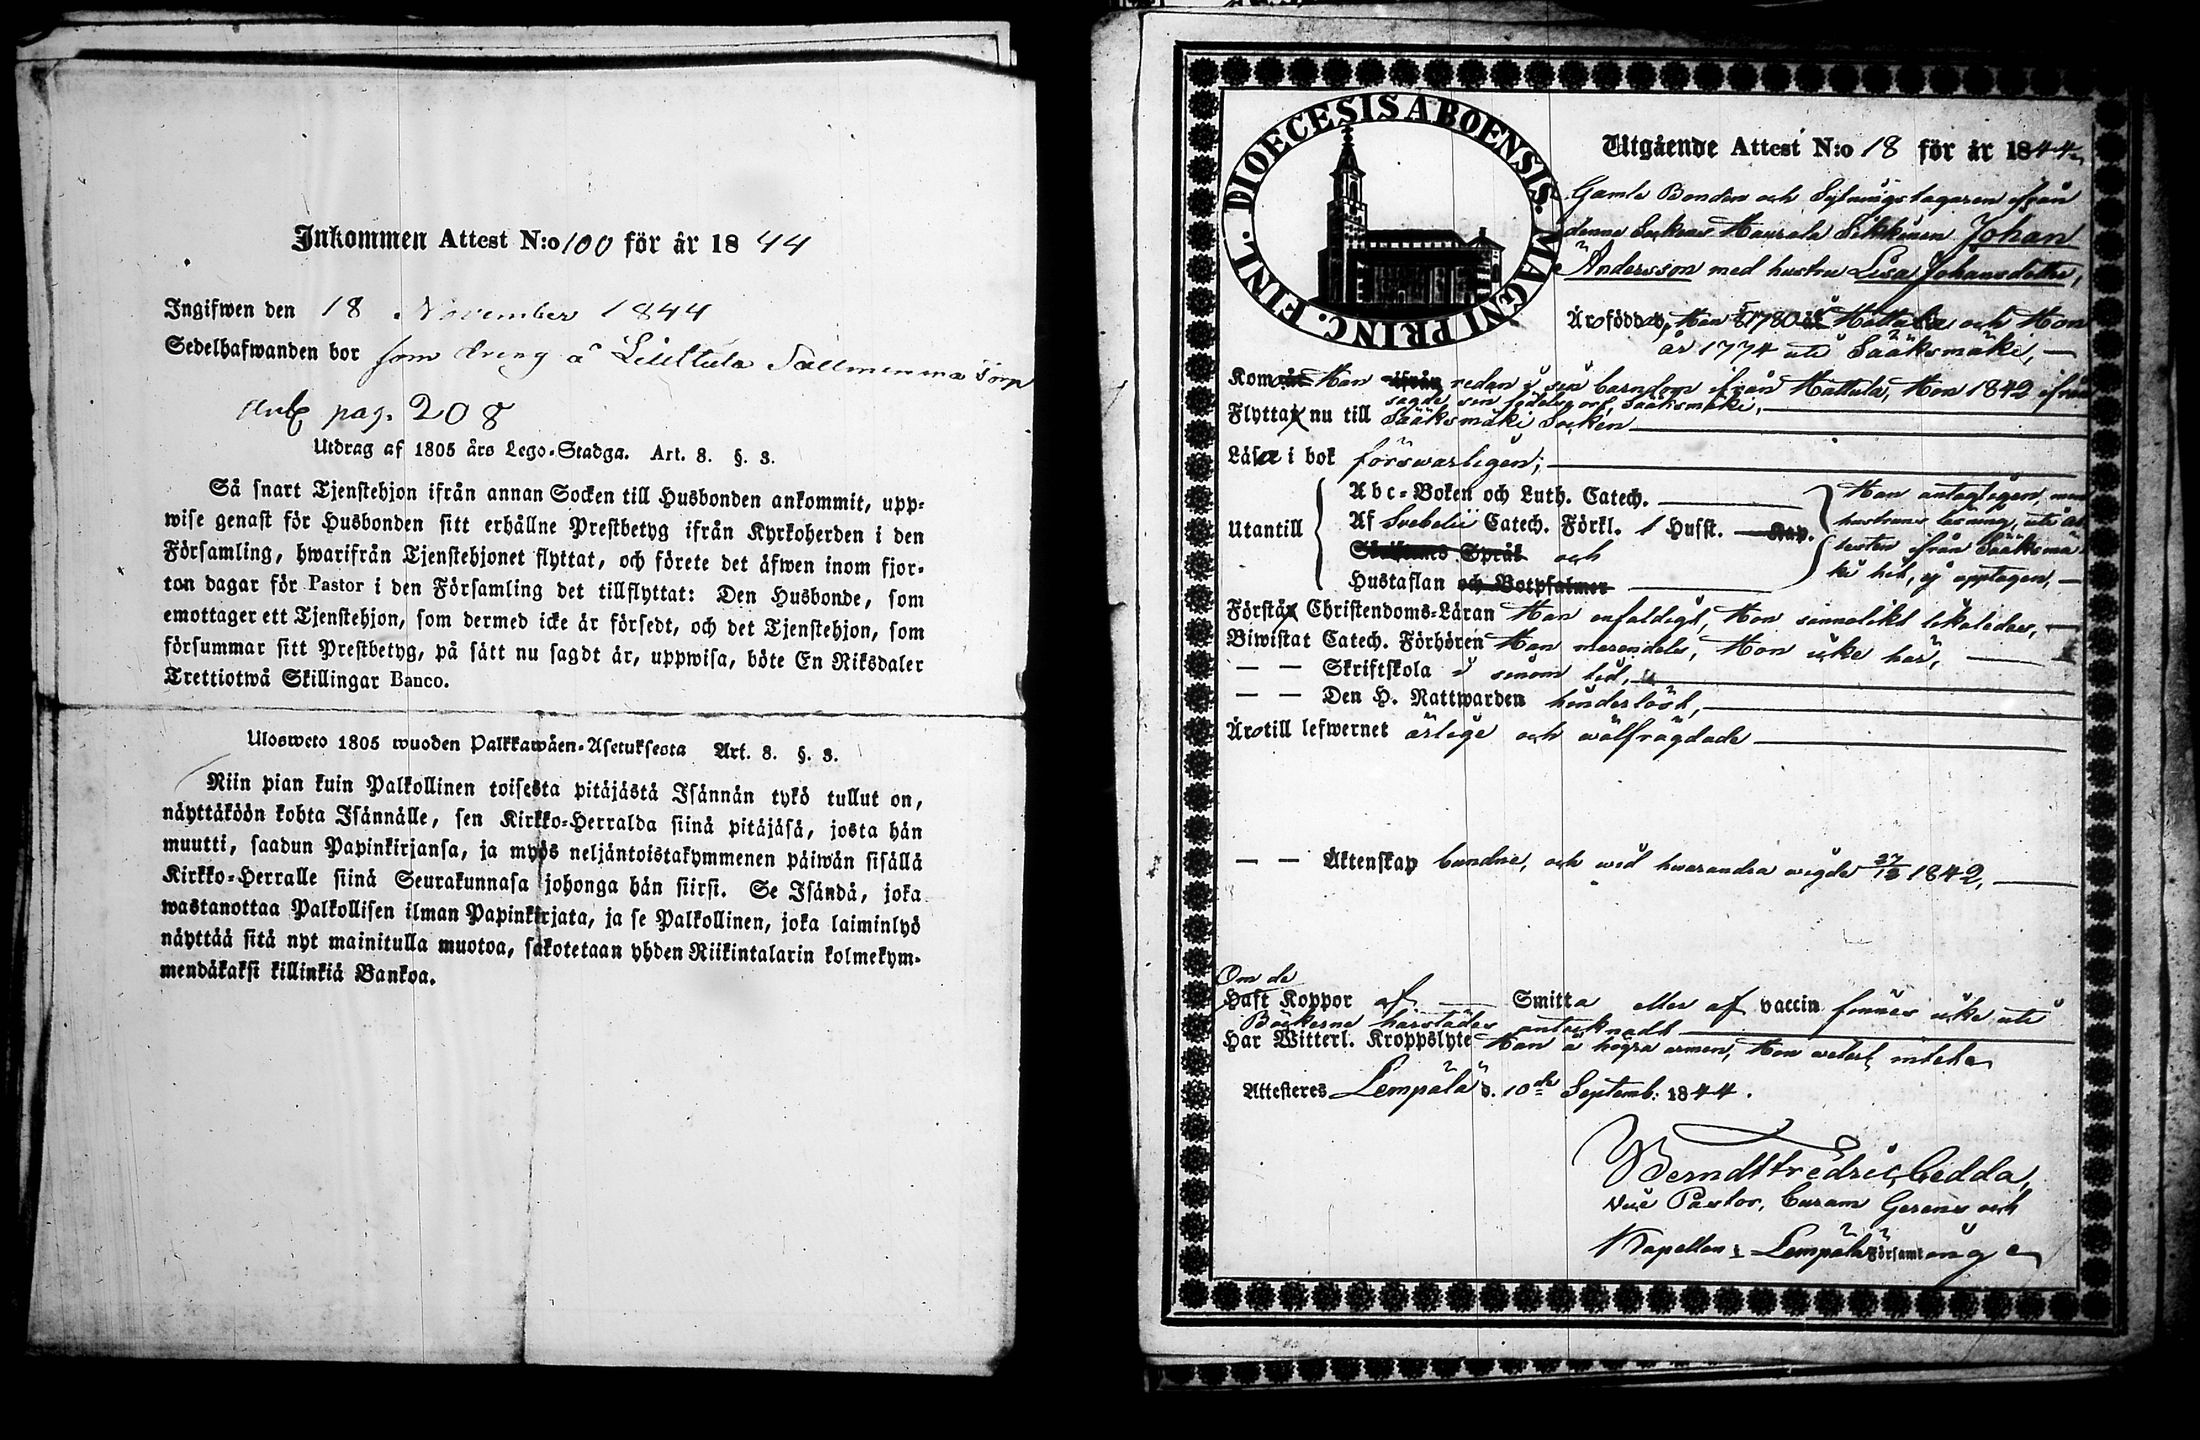 Inkommen Attest N:o 100 för år 1844
Ingifwen den 18 November 1844
Sedelhafwanden bor som dreng å
pag. 208
Utdrag af 1805 års Lego-Stadga. Art. 8. §. 3.
Så snart Tjenstehjon ifrån annan Socken till Husbonden ankommit, upp-
wise genast för Husbonden sitt erhållne Prestbetyg ifrån Kyrkoherden i den
Församling, hwarifrån Tjenstehjonet flyttat, och förete det äfwen inom fjor-
ton dagar för Pastor i den Församling det tillflyttat: Den Husbonde, som
emottager ett Tjenstehjon, som dermed icke är försedt, och det Tjenstehjon, som
försummar sitt Prestbetyg, på sätt nu sagdt är, uppwisa, böte En Riksdaler
Trettiotwå Skillingar Banco.
Ulosweto 1805 wuoden Palkkawäen-Asetuksesta Art. 8. §. 3.
Niin pian kuin Palkollinen toisesta pitäjästä Isännän tykö tullut on,
näyttäköön kohta Isännälle, sen Kirkko-Herralda siinä pitäjäsä, josta hän
muutti, saadun Papinkirjansa, ja myös neljäntoistakymmenen päiwän sisällä
Kirkko-Herralle siinä Seurakunnasa johonga hän siirsi. Se Isändä, joka
wastanottaa Palkollisen ilman Papinkirjata, ja se Palkollinen, joka laiminlyö
näyttää sitä nyt mainitulla muotoa, sakotetaan yhden Riikintalarin kolmekym-
mendäkaksi killinkiä Bankoa.
DIOECESIS ABOENSIS. MAGNI PRINC. FINL.
Utgående Attest N:o 18 för år 1844
Gamle Bonden och Sytningstagaren ifrån
denne Sockens Haurala Sikkinen Johan
Andersson med hustru Lisa Johansdotter,
Äro födde, Han 1780 i Hattula och Hon
år 1774 uti Sääksmäki,
Kom Han redan i sin barndom ifrån Hattula, Hon 1842 ifrån
sagde sin födelse ort, Sääksmäki,
Flytta nu till Sääksmäki Socken
Läsa i bok förswarligen;
Utantill
Abc-Boken och Luth. Catech.
Af Svebelii Catech. Förkl. 1 Husst. Kap.
Skriftens Språk och
Hustaflan och Botpsalmer
Han antagligen, men
hustruns läsning, uti at
testen ifrån Sääksmä
ki hit, ej upptagen,
Förstå Christendoms-Läran Han enfaldigt, Hon sannolikt likaledes,
Biwistat Catech. Förhören Han merendels, Hon icke här,
— — Skriftskola i sinom tid,
— — Den H. Nattwarden hinderlöst,
Äro till lefwernet ärlige och wälfrägdade
— — Äktenskap bundne, och wid hwarandra wigde 27/12 1842,
Om de
Haft Koppor af Smitta eller af vaccin finnes icke uti
Böckerne härstädes antecknadt
Har Witterl. Kroppslyte Han å högra armen, Hon weterl. intet
Attesteres Lempälä d. 10de Septemb: 1844.
Berndt Fredric Cedda,
Vice Pastor, Curam Gerens och
Kapellan i Lempälä Församling